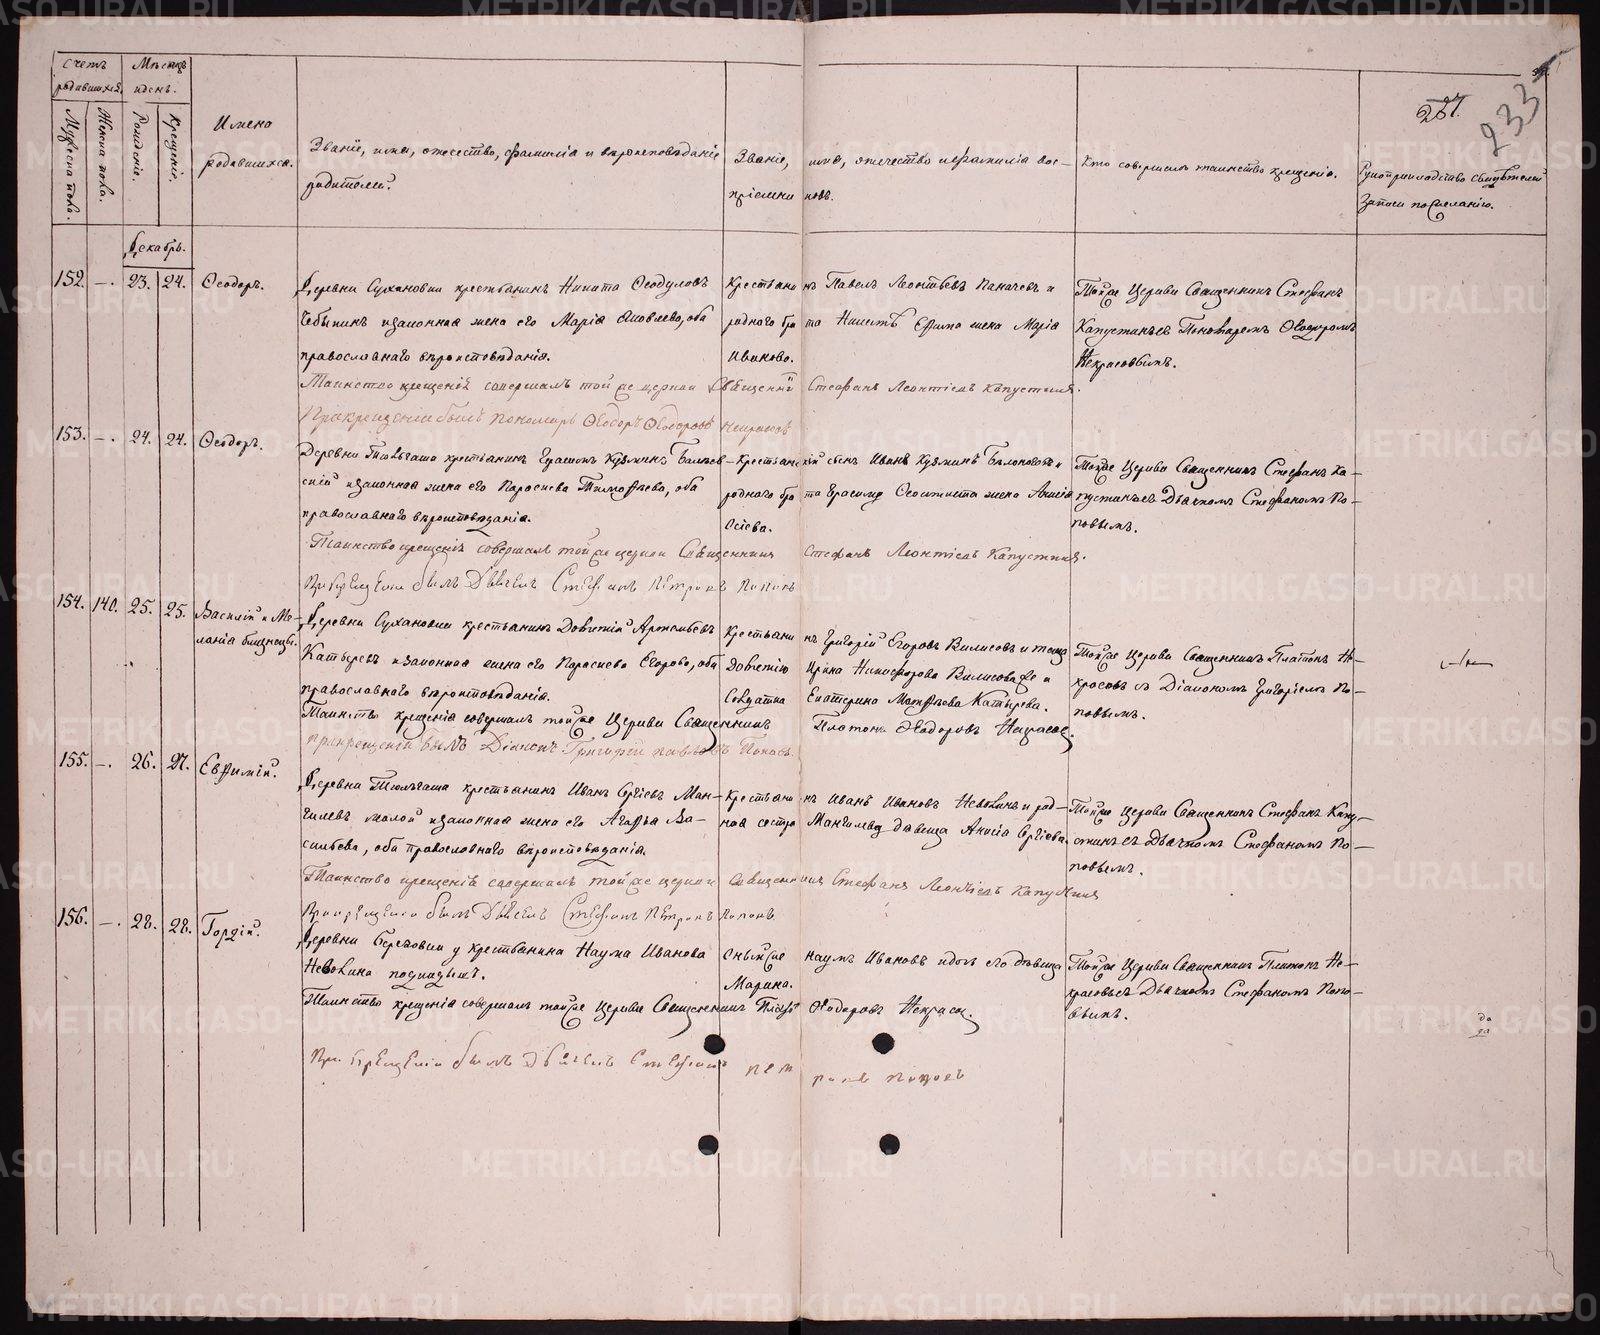 Счетъ родившихся.
Мѣсяцъ и день.
Мужеска пола.
Женска пола.
Рожденіе.
Крещеніе.
Имена родившихся.
Званіе, имя, отечество, фамилія и вѣроисповѣданіе
родителей.
Званіе, имя, отечество и фамилія вос-
пріемниковъ.
Кто совершалъ таинство крещенія.
Рукоприкладство свидѣтелей
записи по желанію.
257.
233
Декабрь.
152. —. 23. 24. Ѳеодоръ.
Деревни Сухановки крестьянинъ Никита Ѳеодуловъ
и законная жена его Марія Яковлева, оба
православнаго вѣроисповѣданія.
Крестьянинъ Павелъ Леонтьевъ Паначевъ и
роднаго брата Ефима жена Марія
Иванова.
Тойже Церкви Священникъ Стефанъ
Капустинъ съ Пономаремъ Ѳеодоромъ
Некрасовымъ.
Таинство крещенія совершалъ той же церкви Священникъ Стефанъ Леонтіевъ Капустинъ.
При крещеніи былъ пономарь Ѳеодоръ Ѳеодоровъ Некрасовъ
153. —. 24. 24. Ѳеодоръ.
Деревни крестьянинъ Герасимъ Кузминъ
и законная жена его Параскева Тимофеева, оба
православнаго вѣроисповѣданія.
сынъ Иванъ Кузминъ и
роднаго брата Герасима жена Анисія
Осіева.
Тойже Церкви Священникъ Стефанъ Ка-
пустинъ съ Дьячкомъ Стефаномъ По-
повымъ.
Таинство крещенія совершалъ тойже церкви Священникъ Стефанъ Леонтіевъ Капустинъ.
При крещеніи былъ Дьячекъ Стефанъ Петровъ Поповъ
154. 140. 25. 25. Василій и Ме-
ланія близнецы.
Деревни Сухановки крестьянинъ Артемьевъ
Катыревъ и законная жена его Параскева Егорова, оба
православнаго вѣроисповѣданія.
Крестьянинъ Григорій Егоровъ Вилисовъ и
Ирина Никифорова Вилисова же и
Солдатка Екатерина Матѳѣева Катырева.
Тойже Церкви Священникъ Платонъ Не-
красовъ съ Діакономъ Григоріемъ По-
повымъ.
Таинство крещенія совершалъ тойже Церкви Священникъ Платонъ Ѳеодоровъ Некрасов
При крещеніи былъ Діаконъ Григорій Павловъ Поповъ.
155. —. 26. 27. Евѳимій.
Деревни крестьянинъ Иванъ Сергіевъ Ман-
гилевъ малой и законная жена его Агафья Ва-
сильева, оба православнаго вѣроисповѣданія.
Крестьянинъ Иванъ Ивановъ Неволинъ и род-
ная сестра Мангилева дѣвица Анисія Сергіева.
Тойже Церкви Священникъ Стефанъ Капу-
стинъ съ Дьячкомъ Стефаномъ По-
повымъ.
Таинство крещенія совершалъ тойже церкви священникъ Стефанъ Леонтіевъ Капустинъ
При крещеніи былъ Дьячекъ Стефанъ Петровъ Поповъ
156. —. 28. 28. Гордій.
Деревни Березовки у крестьянина Наума Иванова
Неволина подкидышъ.
Онъ же Наумъ Ивановъ и дочь его дѣвица
Марина.
Тойже Церкви Священникъ Платонъ Не-
красовъ съ Дьячкомъ Стефаномъ Попо-
вымъ.
Таинство крещенія совершалъ тойже Церкви Священникъ Платонъ Ѳеодоровъ Некрасов.
При крещеніи былъ Дьячекъ Стефанъ Петровъ Поповъ
METRIKI.GASO-URAL.RU